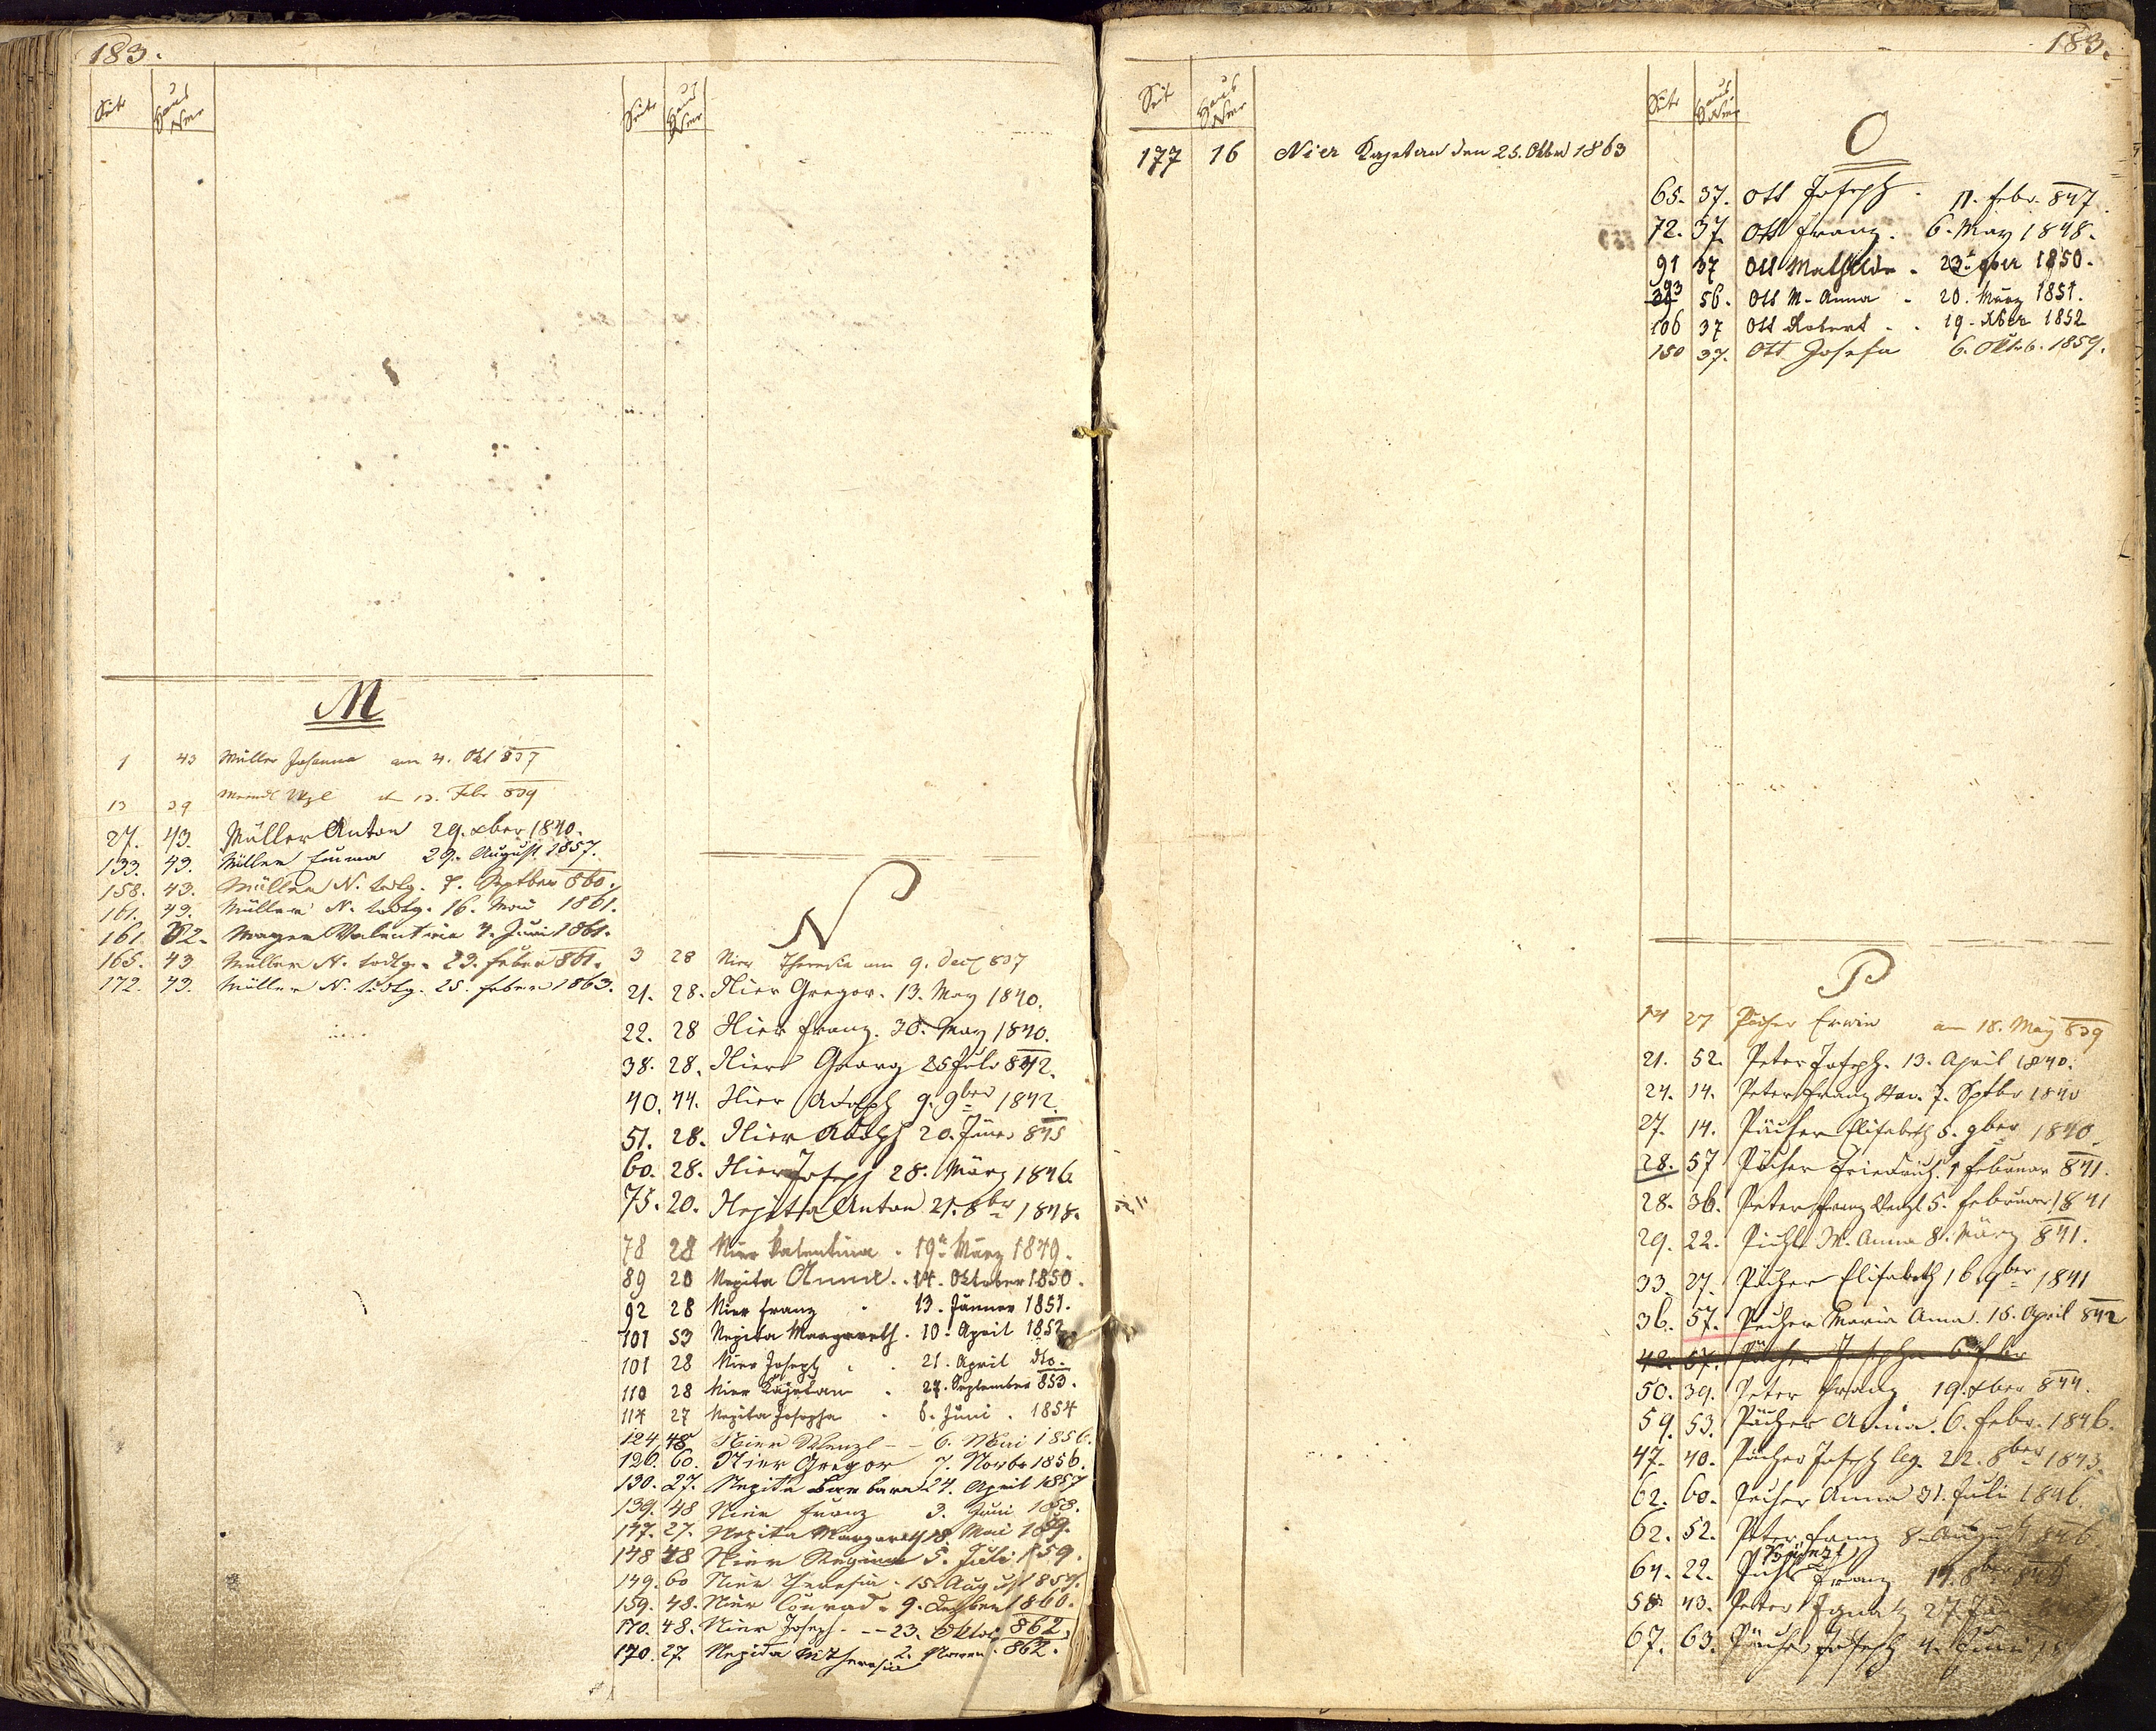 183.
Seite Haus Nro
M
1 43 Müller Johanna am 4. Okt 837
13 39 Meindl Wzl d 13. Febr 839
27. 43. Müller Anton 29. xber 1840.
133. 43. Müller Emma 29. August 1857.
158. 43. Müller N. todtg. 7. Septber 860.
161. 43. Müller N. todtg. 16. Mai 1861.
161 32. Mayer Valentin 4. Juni 1861.
165. 43 Müller N. todtg. 23. 861.
172. 43. Müller N. todtg. 25. Feber 1863.
Seite Haus Nro
N
3 28 Nier Theresia am 9. Dec 837
21. 28. Nier Gregor. 13. May 1840.
22. 28 Nier Franz. 30. May 1840.
38. 28. Nier Georg 25 Juli 842.
40. 44. Nier Adolph 9. 9ber 1842.
51. 28. Nier Adolph 20. Jäner 845
60. 28. Nier Joseph 28. März 1846
75. 20. Nepita Anton 21. 8br 1848.
78 28 Nier Valentina . 19t März 1849.
89 20 Nepita Anna . . 14. Oktober 1850.
92 28 Nier Franz . 13. Jänner 1851.
101 53 Nepita Margareth . 10. April 1852
101 28 Nier Joseph . . 21. April dto.
110 28 Nier Kajetan . 27. September 853.
114 27 Nepita Josepha . 6. Juni . 1854
124 48 Nier Wenzl - - 6. Mai 1856.
126. 60. Nier Gregor 7. Novbr 1856.
130. 27. Nepita Barbara 24. April 1857
139. 48 Nier Franz 3. Juni 1858.
147. 27. Nepita Margareth 18 Mai 1859.
148 48 Nier Regina 5. Juli 1859.
149. 60 Nier Theresia . 15. August 1859.
159. 48. Nier Conrad . 9. Dezber 1860.
170. 48. Nier Joseph . - - 23. Oktob 862.
170. 27. Nepida M Theresia 2. Novem. 862.
183.
Seite Haus Nro
177 16 Nier Kajetan den 25. Oktbr 1863
Seite Haus Nro
O
65. 37. Ott Joseph . 11. Febr. 847.
72. 37. Ott Franz . 6. May 1848.
91 37 Ott Mathilde . 23t 9ber 1850.
93 56. Ott M. Anna . 20. März 1851.
106 37 Ott Robert . . 19. Xber 1852
150 37. Ott Josefa 6. Oktob. 1859.
P
14 27 Pächer Erwin am 18. May 839
21. 52. Peter Joseph. 13. April 1840.
24. 14. Peter Franz Xav. 7. Sptbr 1840
27. 14. Pächer Elisabeth 5. 9ber 1840.
28. 57 Pächer Friedrich. 1 Februar 841.
28. 36. Peter Franz Wenzl 5. Februar 1841
29. 22. Pichl M. Anna 8. März 841.
33. 27. Pächer Elisabeth 16. 9ber 1841
36. 57. Pecher Maria Anna. 15. April 842
42. 57. Pächer Josepha
50. 39. Peter Franz 19. xber 844.
59. 53. Pächer Anna. 6. Febr. 1846.
47. 40. Pächer Joseph leg. 22. 8ber 1843.
62. 60. Pecher Anna 31. Juli 1846.
62. 52. Peter Franz 8. August 1846
64. 22. Pichl Franz 19. 8ber 846
58 43. Peter Ignatz 27.
67. 63. Pächer Joseph 4. Juni 18